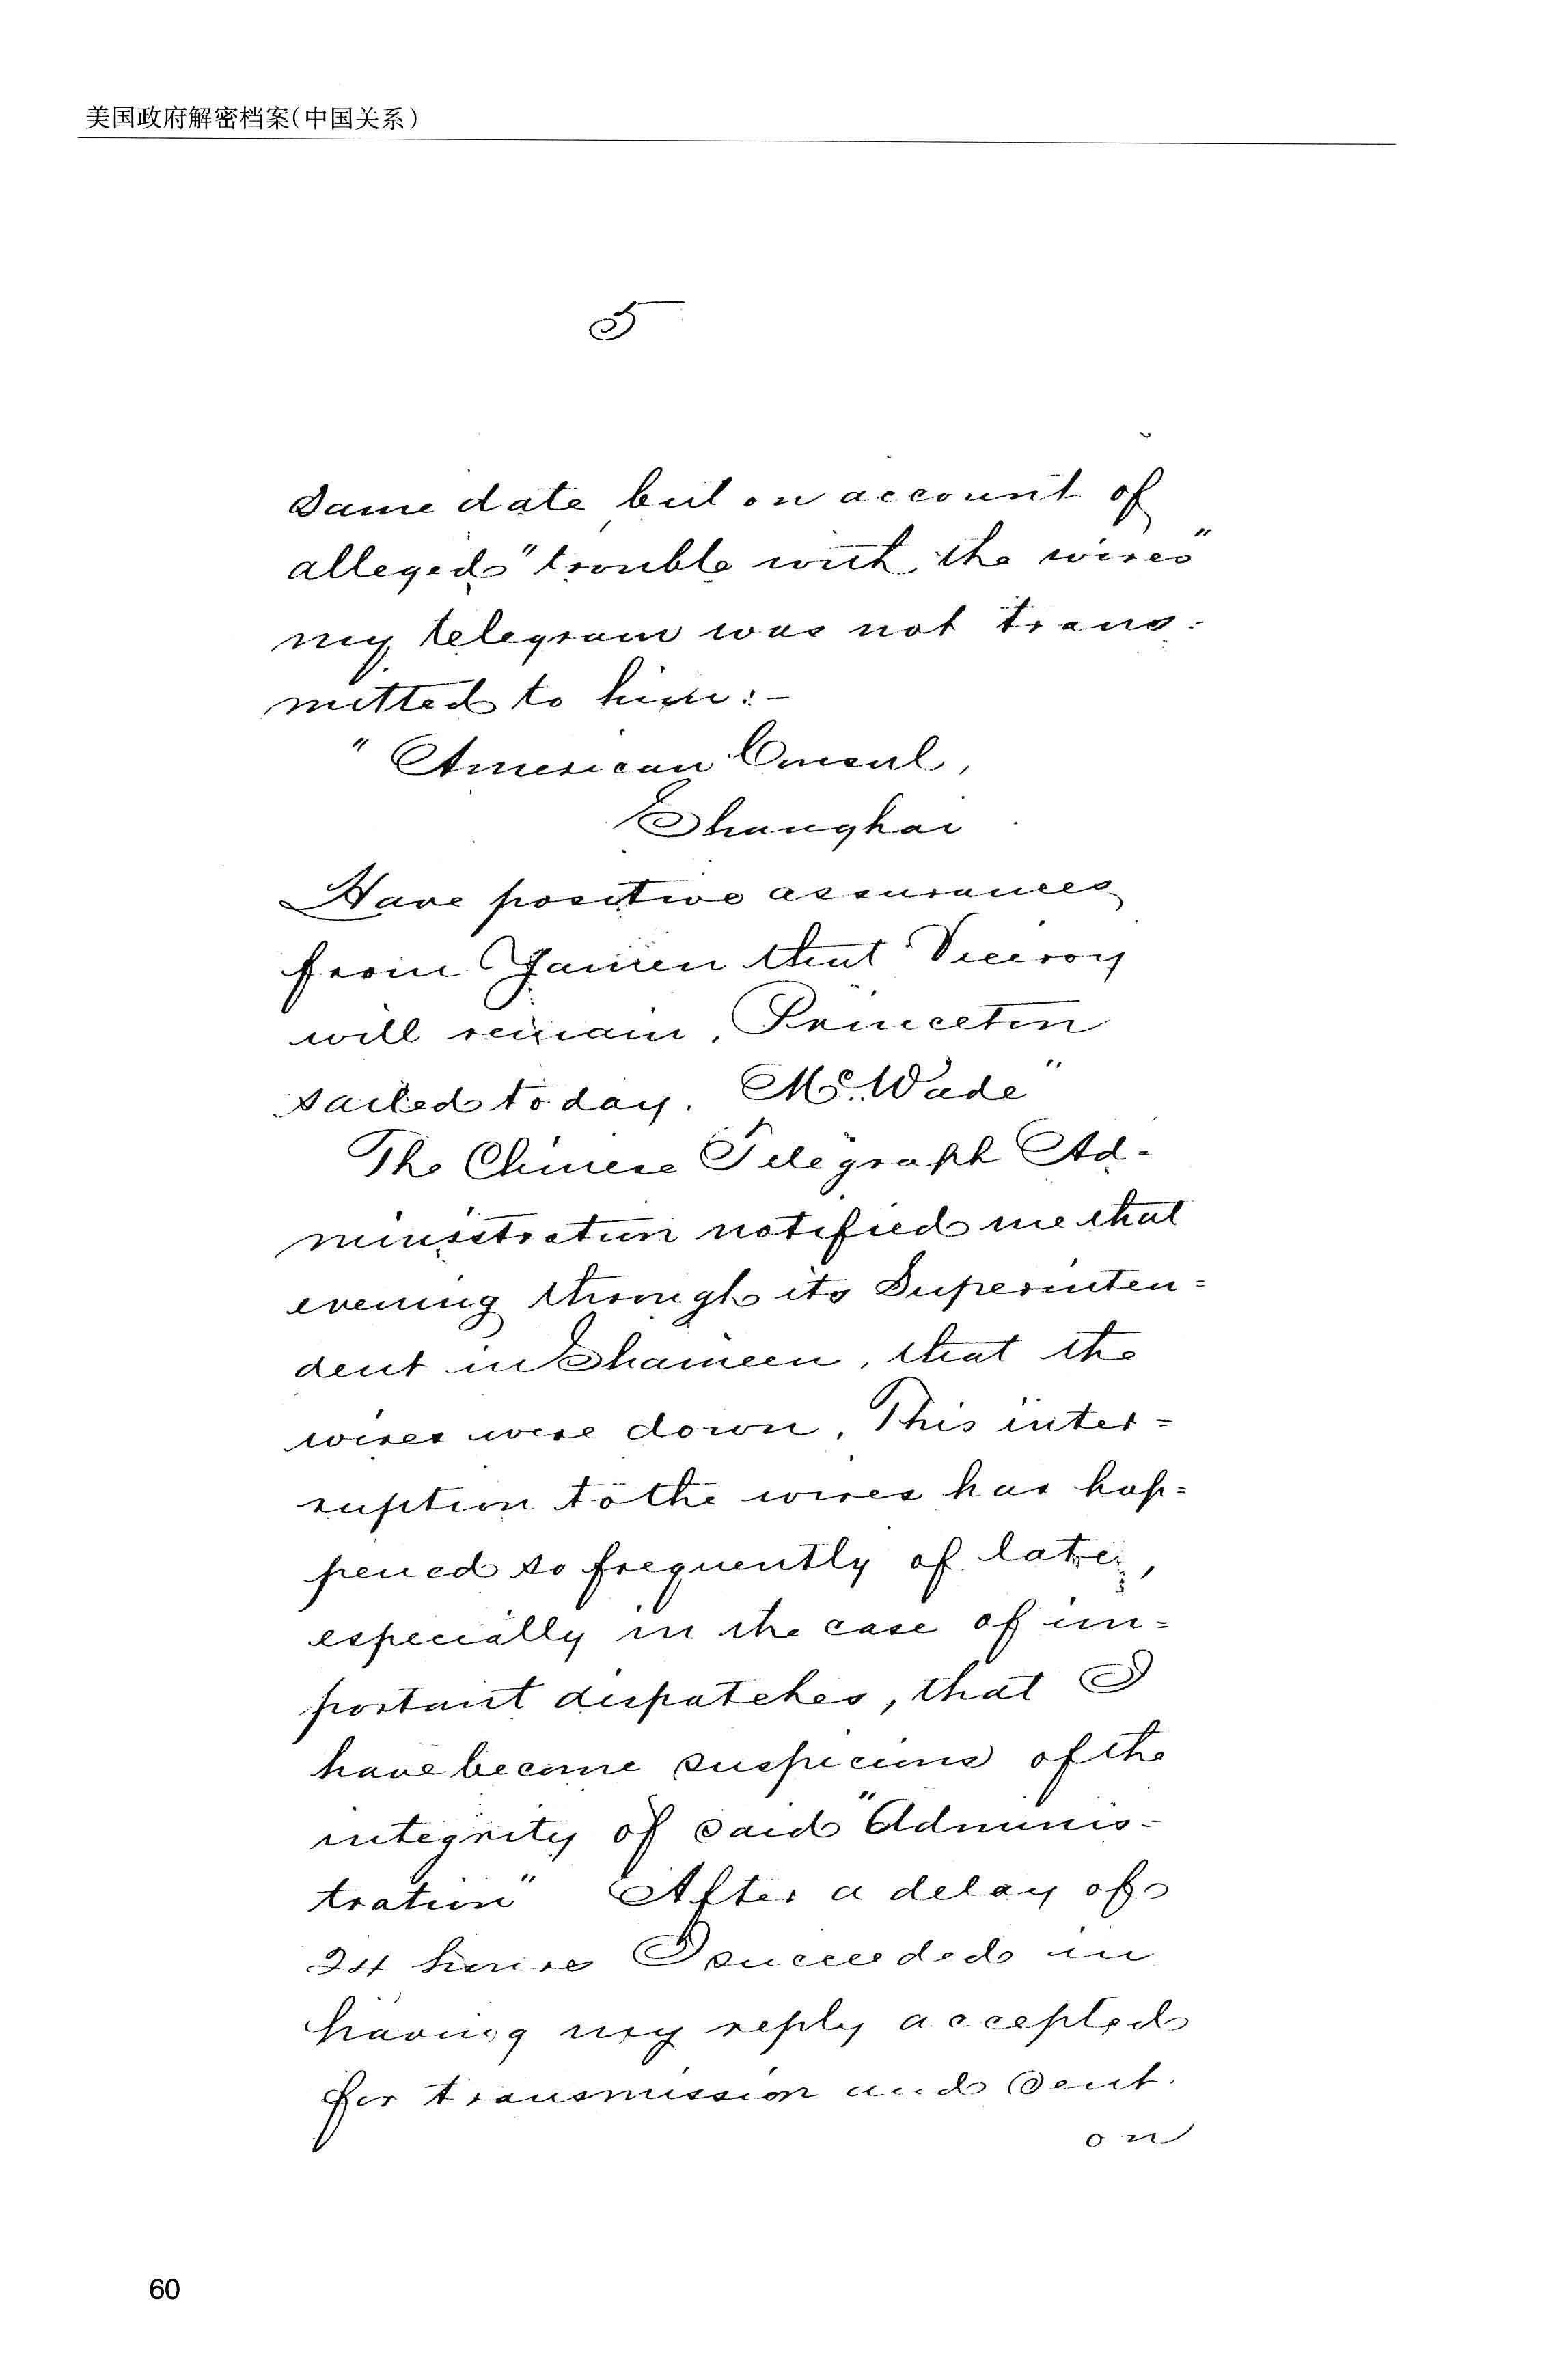 美国政府解密档案(中国关系)
5
same date but on account of
alleged "trouble with the wires"
my telegram was not trans-
mitted to him:-
" American Consul,
Shanghai
Have positive assurances
from Yamen that Viceroy
will remain, Princeton
sailed today. McWade"
The Chinese Telegraph Ad-
ministration notified me that
evening through its Superinten=
dent in Shameen, that the
wires were down. This inter=
ruption to the wires has hap=
pened so frequently of late,
especially in the case of im=
portant dispatches, that I
have become suspicious of the
integrity of said "Adminis-
tration" After a delay of
24 hours I succeeded in
having my reply accepted
for transmission and sent.
on
60